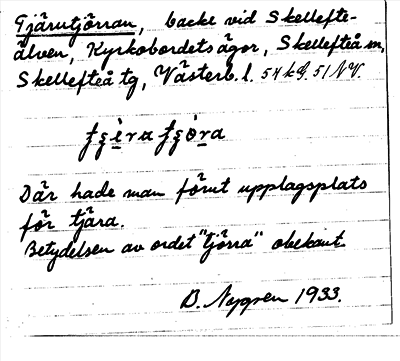 Tjärutjörran, backe vid Skellefte-
älven, Kyrkobordets ägor, Skellefteå sn,
Skellefteå tg, Västerb. l. 54 k G. 51 NV.
Där hade man förut upplagsplats
för tjära.
Betydelsen av ordet "tjörra" obekant.
D. Nygren 1933.